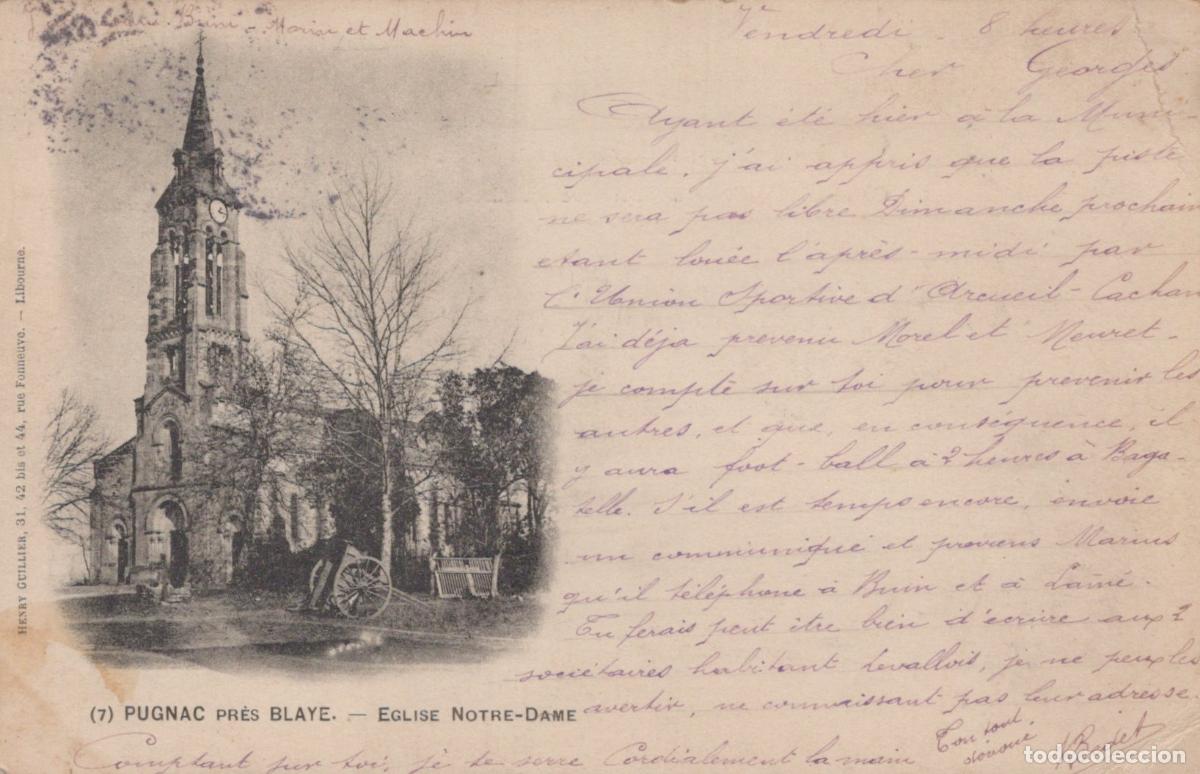 Morin et Machin
Vendredi - 8 heures
Cher Georges
Ayant été hier à la Muni-
cipale, j'ai appris que la piste
ne sera pas libre Dimanche prochain
étant louée l'après-midi par
l'Union Sportive d'Arcueil-Cachan
J'ai déja prevenu Morel et Meuret -
je compte sur toi pour prevenir les
autres, et que, en conséquence, il
y aura foot-ball à 2 heures à Baga-
telle. S'il est temps encore, envoie
un communiqué et previens Marius
qu'il téléphone à Buin et à Lainé.
Tu ferais peut être bien d'écrire aux 2
sociétaires habitant Levallois, je ne peux les
avertir, ne connaissant pas leur adresse
Comptant sur toi, je te serre Cordialement la main
Ton tout
dévoué
HENRY GUILLIER, 31, 42 bis et 44, rue Fonneuve. — Libourne.
(7) PUGNAC PRÈS BLAYE. — EGLISE NOTRE-DAME
todocoleccion.net